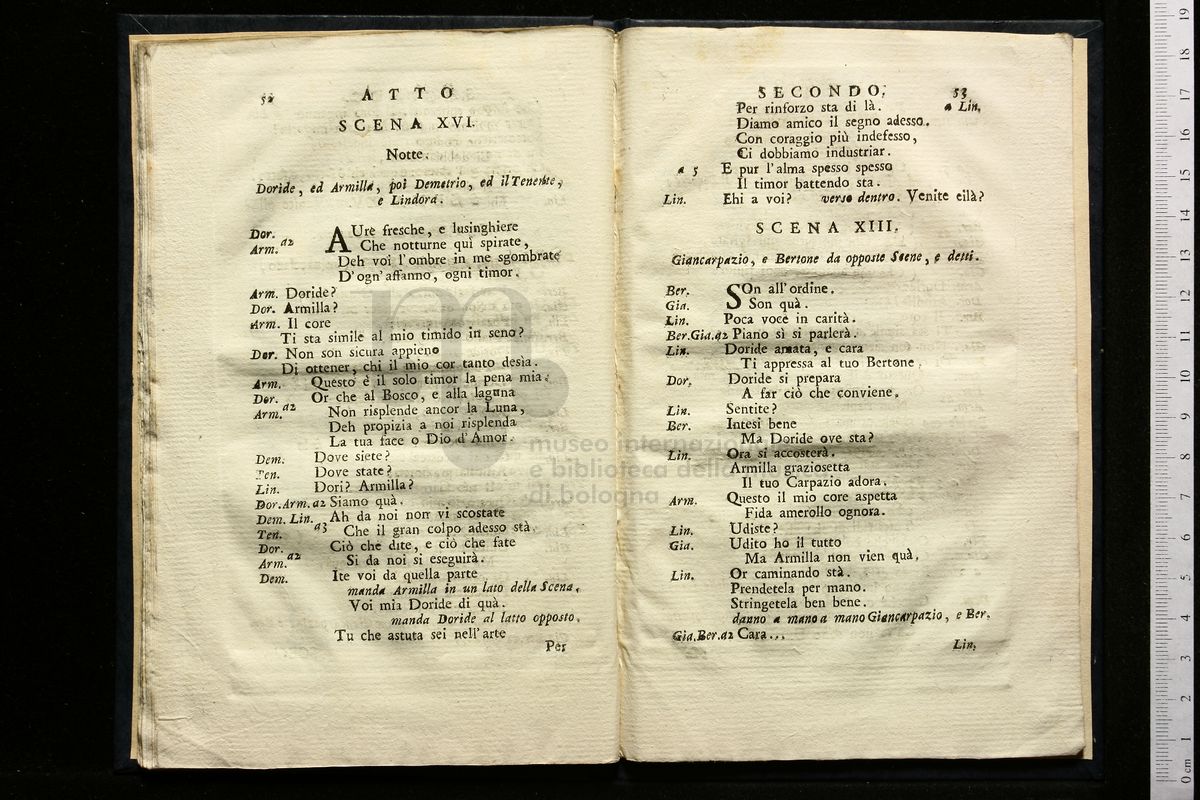 52
ATTO
SCENA XVI.
Notte.
Doride, ed Armilla, poi Demetrio, ed il Tenente,
e Lindora.
Dor. Arm. a2 AUre fresche, e lusinghiere
Che notturne qui spirate,
Deh voi l'ombre in me sgombrate
D'ogn'affanno, ogni timor.
Arm. Doride?
Dor. Armilla?
Arm. Il core
Ti sta simile al mio timido in seno?
Dor. Non son sicura appieno
Di ottener, chi il mio cor tanto desìa.
Arm. Questo è il solo timor la pena mia.
Dor. Or che al Bosco, e alla laguna
Arm. a2 Non risplende ancor la Luna,
Deh propizia a noi risplenda
La tua face o Dio d'Amor.
Dem. Dove siete?
Ten. Dove state?
Lin. Dori? Armilla?
Dor. Arm. a2 Siamo quà.
Dem. Lin. Ah da noi non vi scostate
Ten. a3 Che il gran colpo adesso stà.
Dor. Ciò che dite, e ciò che fate
Arm. a2 Si da noi si eseguirà.
Dem. Ite voi da quella parte
manda Armilla in un lato della Scena,
Voi mia Doride di quà.
manda Doride al latto opposto.
Tu che astuta sei nell'arte
Per
SECONDO.
53
Per rinforzo sta di là. a Lin.
Diamo amico il segno adesso.
Con coraggio più indefesso,
Ci dobbiamo industriar.
a 5 E pur l'alma spesso spesso
Il timor battendo sta.
Lin. Ehi a voi? verso dentro. Venite eilà?
SCENA XIII.
Giancarpazio, e Bertone da opposte Scene, e detti.
Ber. SOn all'ordine.
Gia. Son quà.
Lin. Poca voce in carità.
Ber. Gia. a2 Piano sì si parlerà.
Lin. Doride amata, e cara
Ti appressa al tuo Bertone.
Dor. Doride si prepara
A far ciò che conviene.
Lin. Sentite?
Ber. Intesi bene
Ma Doride ove sta?
Lin. Ora si accosterà.
Armilla graziosetta
Il tuo Carpazio adora.
Arm. Questo il mio core aspetta
Fida amerollo ognora.
Lin. Udiste?
Gia. Udito ho il tutto
Ma Armilla non vien quà.
Lin. Or caminando stà.
Prendetela per mano.
Stringetela ben bene.
danno a mano a mano Giancarpazio, e Ber.
Gia. Ber. a2 Cara...
Lin.
museo internazionale
e biblioteca della
di bologna
0 cm 1 2 3 4 5 6 7 8 9 10 11 12 13 14 15 16 17 18 19